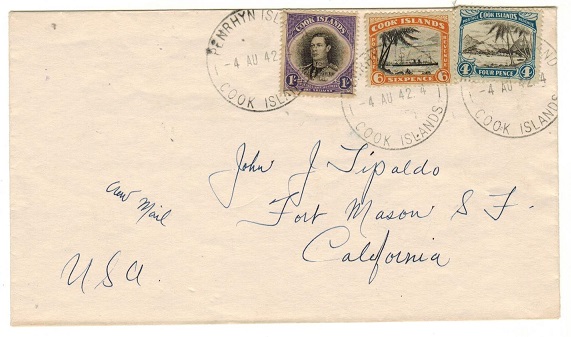 PENRHYN ISL
- 4 AU 42
COOK ISLANDS
COOK ISLANDS
1/-
1/-
COOK ISLANDS
6 SIXPENCE 6
- 4 AU 42 4
COOK ISLANDS
COOK ISLANDS
4 FOUR PENCE 4
- 4 AU 42 4
COOK ISLANDS
John J Tipaldo
Fort Mason S F.
California
Air Mail
U.S.A.